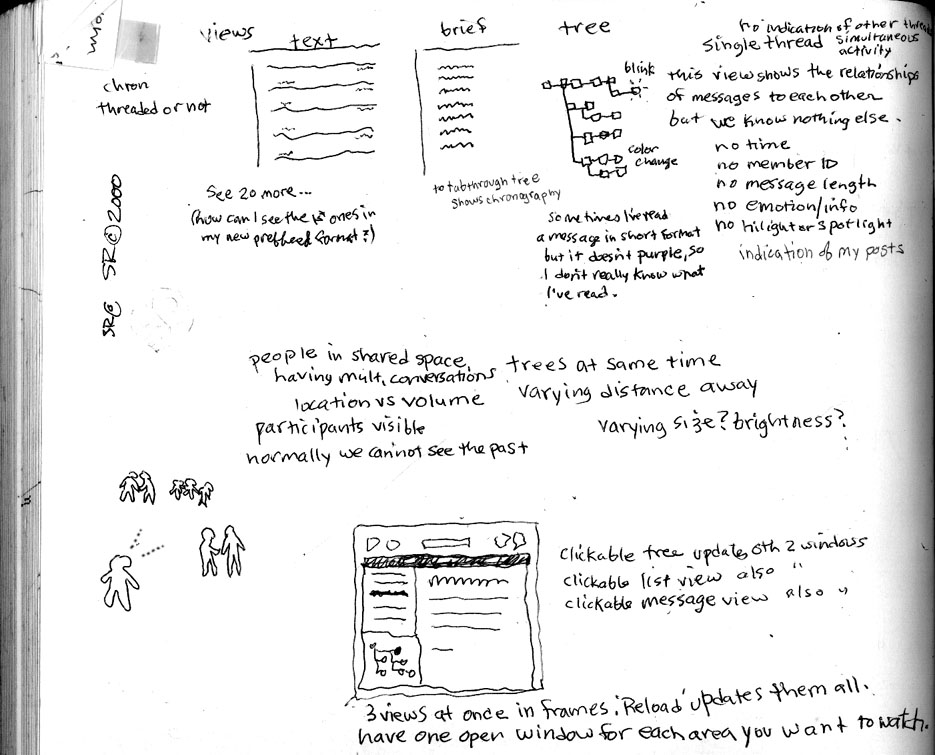 myo.
views
text
brief
tree
no indication of other threads
single thread simultaneous
activity
chron
threaded or not
blink
color
change
this view shows the relationships
of messages to each other
but we know nothing else.
no time
no member ID
no message length
no emotion/info
no hilighter spotlight
indication of my posts
See 20 more...
(how can I see the ones in
my new preffeed format?)
to tabthrough tree
shows chronography
sometimes I've read
a message in short format
but it doesn't purple, so
I don't really know what
I've read.
SR © 2000
SR©
people in shared space,
having mult, conversations
location vs volume
participants visible
normally we cannot see the past
trees at same time
varying distance away
varying size? brightness?
clickable tree updates oth 2 windows
clickable list view also "
clickable message view also "
3 views at once in frames. 'Reload' updates them all.
have one open window for each area you want to watch.